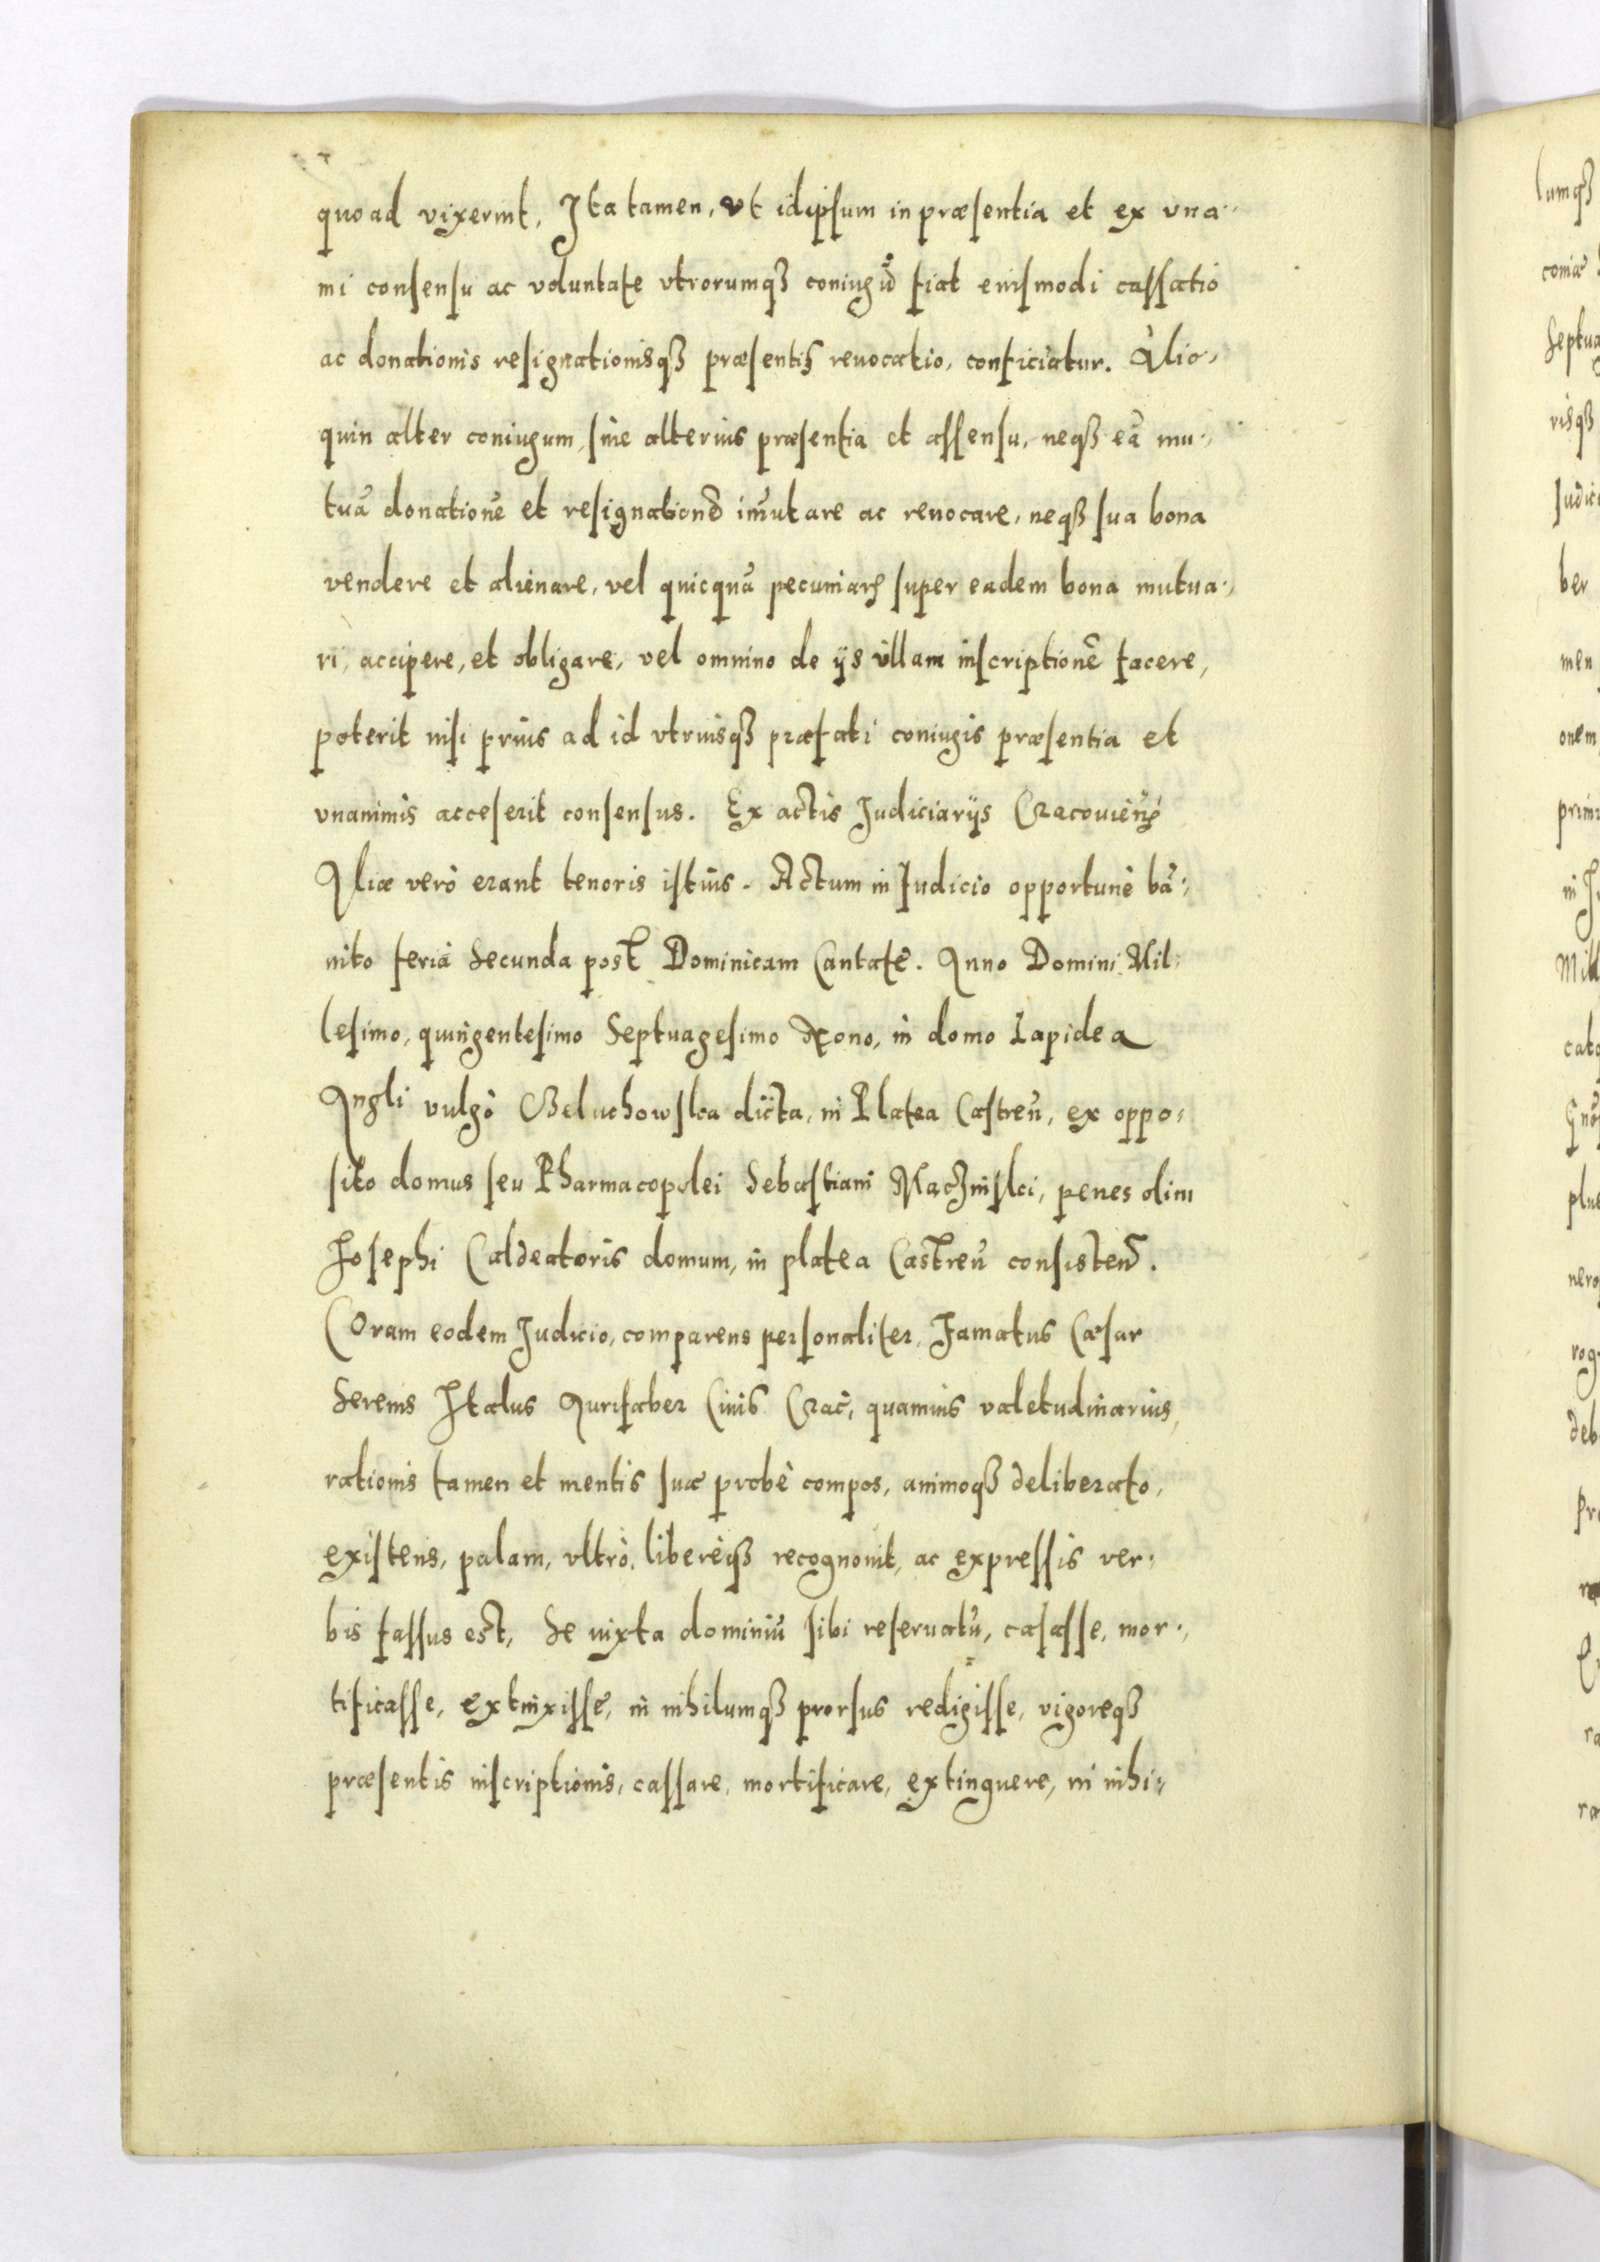 quoad vixerint, Ita tamen, vt idipsum in præsentia et ex vna-
mi consensu ac voluntate vtrorumqꝫ coniugū fiat eiusmodi cassatio
ac donationis resignationisqꝫ præsentis reuocatio, conficiatur. Alio-
quin alter coniugum, sine alterius præsentia et assensu, neqꝫ eā mu-
tuā donationē et resignationē im̄utare ac reuocare, neqꝫ sua bona
vendere et alienare, vel quicquā pecuniarꝫ super eadem bona mutua-
ri, accipere, et obligare, vel omnino de ijs vllam inscriptionē facere,
poterit nisi prius ad id vtriusqꝫ præfati coniugis præsentia et
vnanimis acceserit consensus. Ex actis Judiciarijs Cracouien̄
Aliæ verò erant tenoris istius. Actum in Judicio opportunè bā-
nito feria Secunda post Dominicam Cantate. Anno Domini Mil-
lesimo, quingentesimo Septuagesimo Nono, in domo Lapidea
Angli vulgò Beluchowska dicta, in Platea Castren̄, ex oppo-
sito domus seu Pharmacopolei Sebastiani Mączinski, penes olim
Josephi Caldeatoris domum, in platea Castren̄ consisten̄.
Coram eodem Judicio, comparens personaliter, Famatus Cæsar
Serenis Italus Aurifaber Ciuis Crac̄, quamuis valetudinarius,
rationis tamen et mentis suæ probè compos, animoqꝫ deliberato,
existens, palam, vltrò, liberèqꝫ recognouit, ac expressis ver-
bis fassus est, Se iuxta dominiū sibi reseruatū, casasse, mor-
tificasse, extinxisse, in nihilumqꝫ prorsus redigisse, vigoreqꝫ
præsentis inscriptionis, cassare, mortificare, extinguere, in nihi-